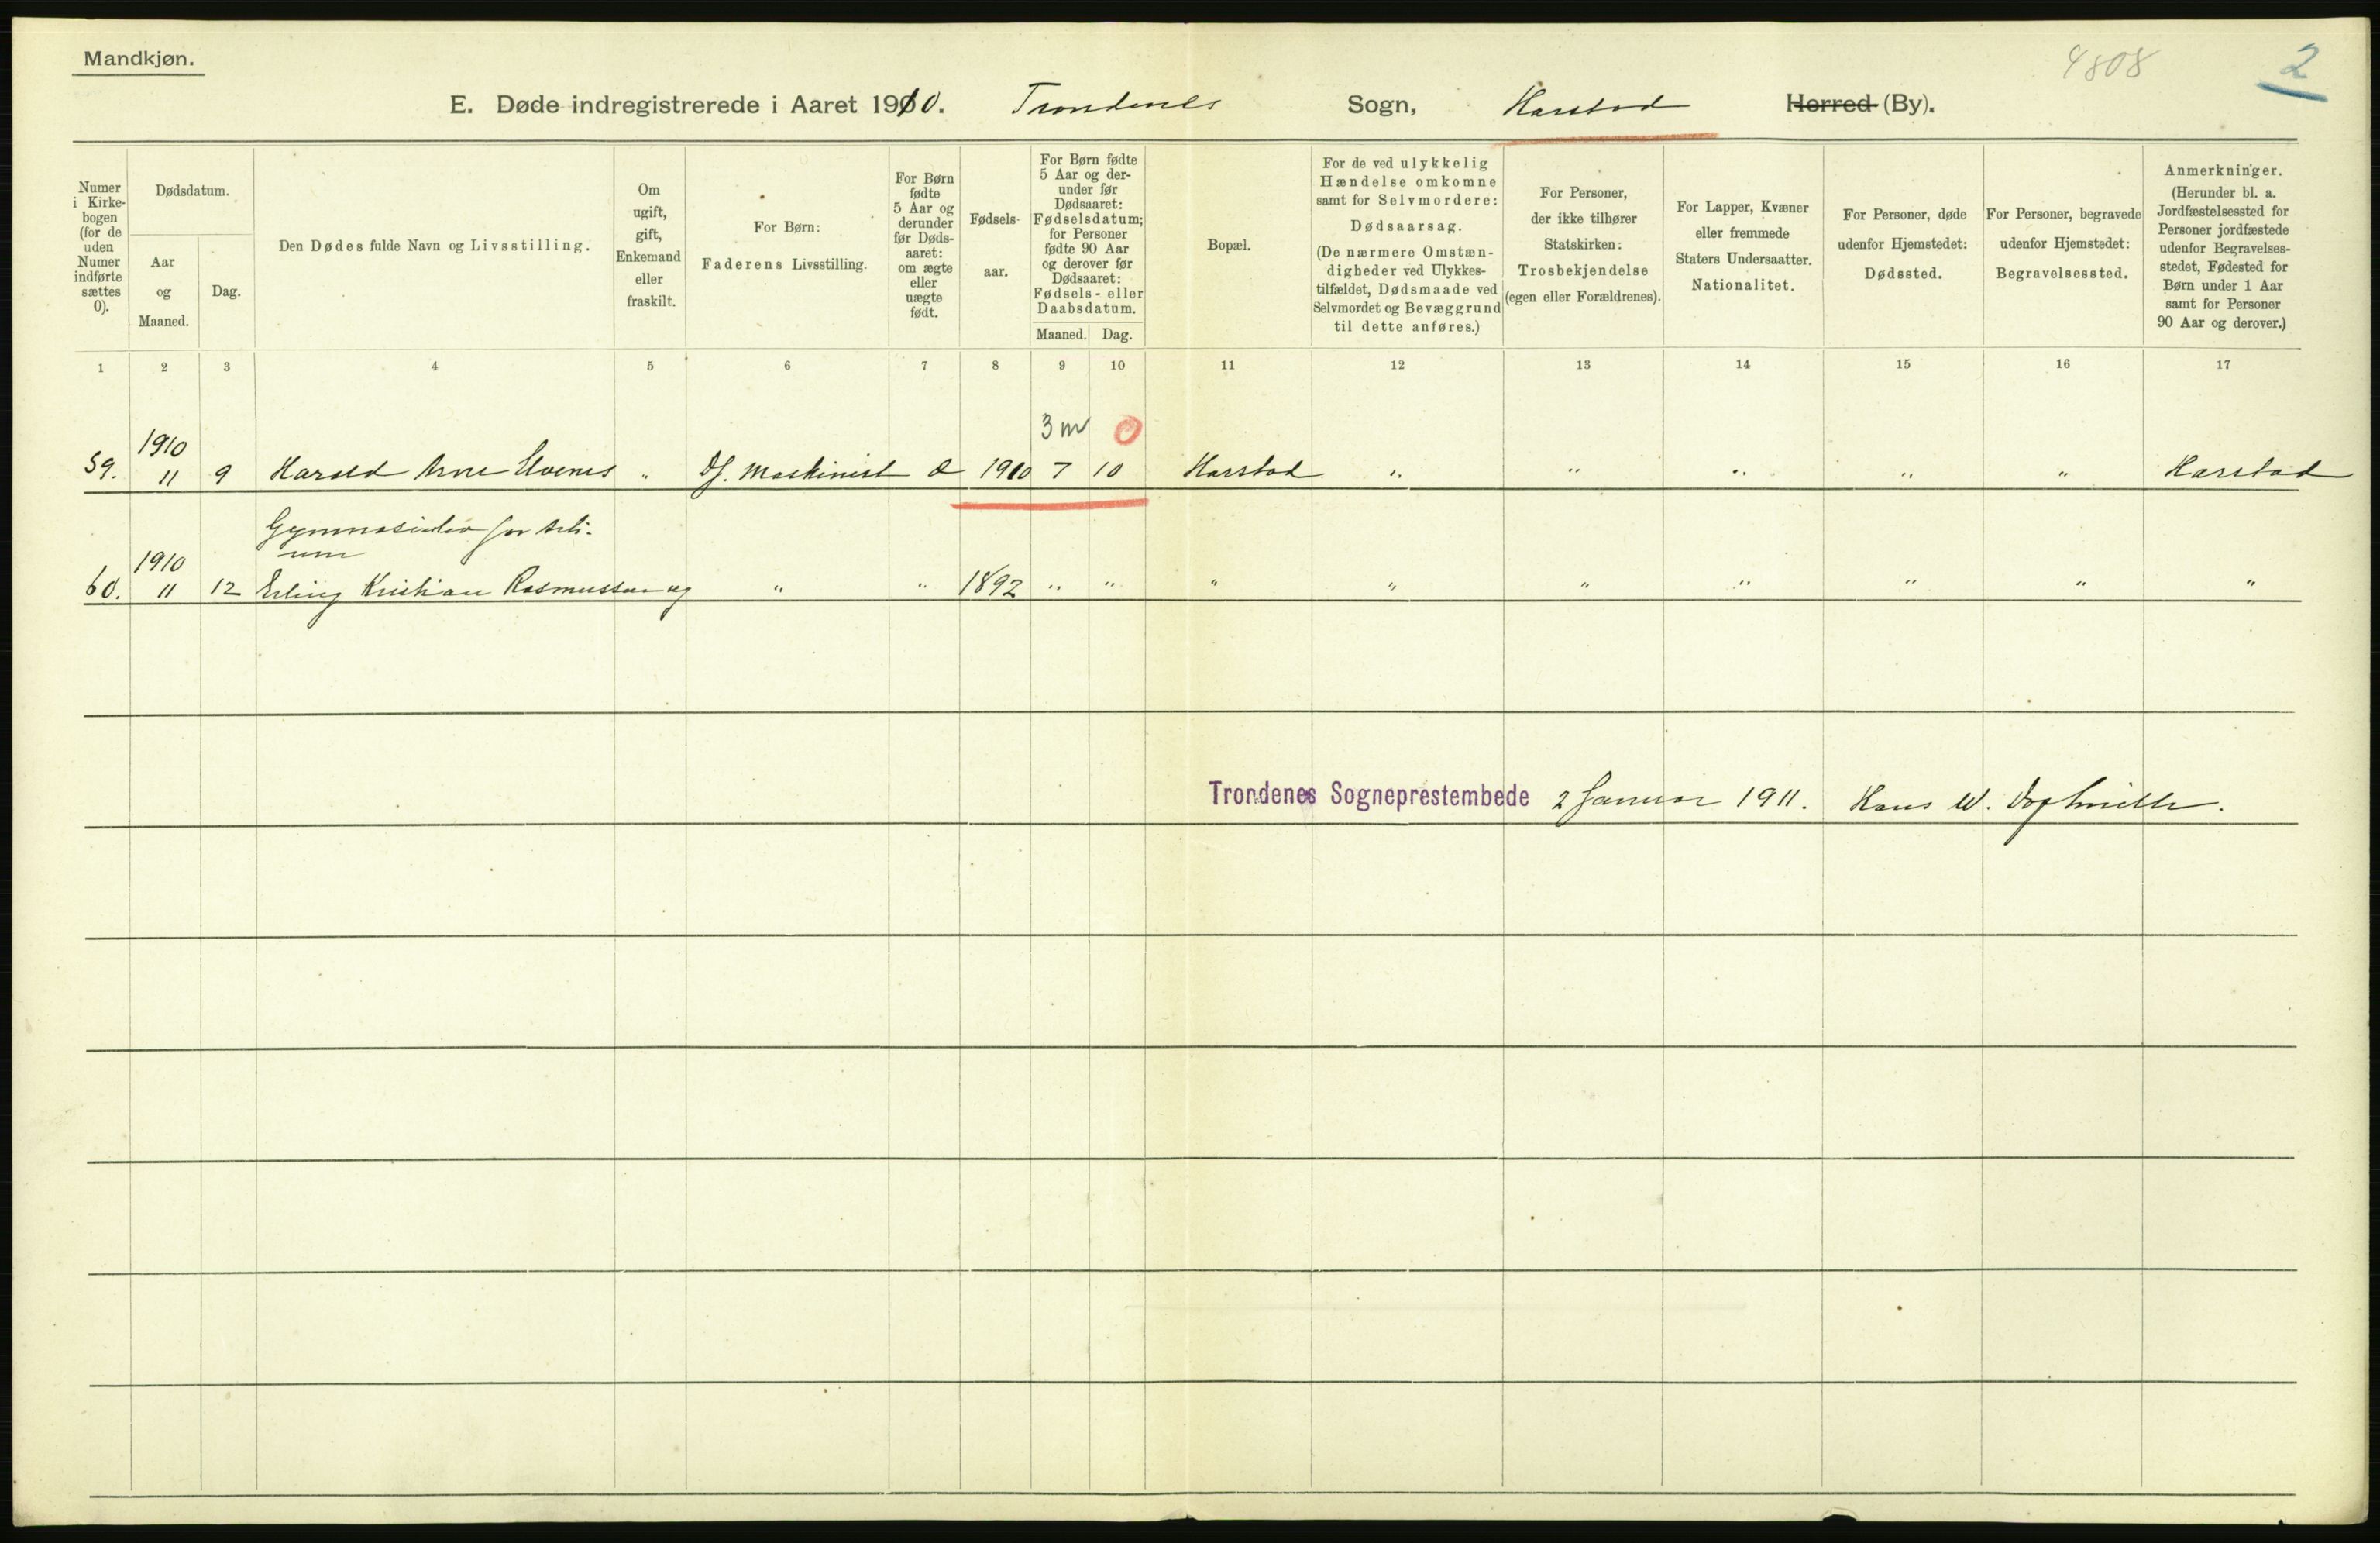 Mandkjøn.
4808
2
E. Døde indregistrerede i Aaret 1910. Trondenes Sogn, Harstad Herred (By).
Numer i Kirke-bogen (for de uden Numer indførte sættes 0).
Dødsdatum.
Aar og Maaned.
Dag.
Den Dødes fulde Navn og Livsstilling.
Om ugift, gift, Enkemand eller fraskilt.
For Børn:
Faderens Livsstilling.
For Børn fødte 5 Aar og derunder før Døds-aaret: om ægte eller uægte født.
Fødsels-aar.
For Børn fødte 5 Aar og der-under før Dødsaaret: Fødselsdatum; for Personer fødte 90 Aar og derover før Dødsaaret: Fødsels- eller Daabsdatum.
Maaned. Dag.
Bopæl.
For de ved ulykkelig Hændelse omkomne samt for Selvmordere:
Dødsaarsag.
(De nærmere Omstæn-digheder ved Ulykkes-tilfældet, Dødsmaade ved Selvmordet og Bevæggrund til dette anføres.)
For Personer, der ikke tilhører Statskirken:
Trosbekjendelse
(egen eller Forældrenes).
For Lapper, Kvæner eller fremmede Staters Undersaatter.
Nationalitet.
For Personer, døde udenfor Hjemstedet:
Dødssted.
For Personer, begravede udenfor Hjemstedet:
Begravelsessted.
Anmerkninger.
(Herunder bl. a. Jordfæstelsessted for Personer jordfæstede udenfor Begravelses-stedet, Fødested for Børn under 1 Aar samt for Personer 90 Aar og derover.)
1 2 3 4 5 6 7 8 9 10 11 12 13 14 15 16 17
3 m 0
1910
59. 11 9 Harald Arne " Maskinist 1910 7 10 Harstad " " " " " Harstad
1910
60. 11 12 Erling Kristian Rasmussen ug " " 1892 " " " " " " " " "
Trondenes Sogneprestembede 2 Januar 1911. Hans W.